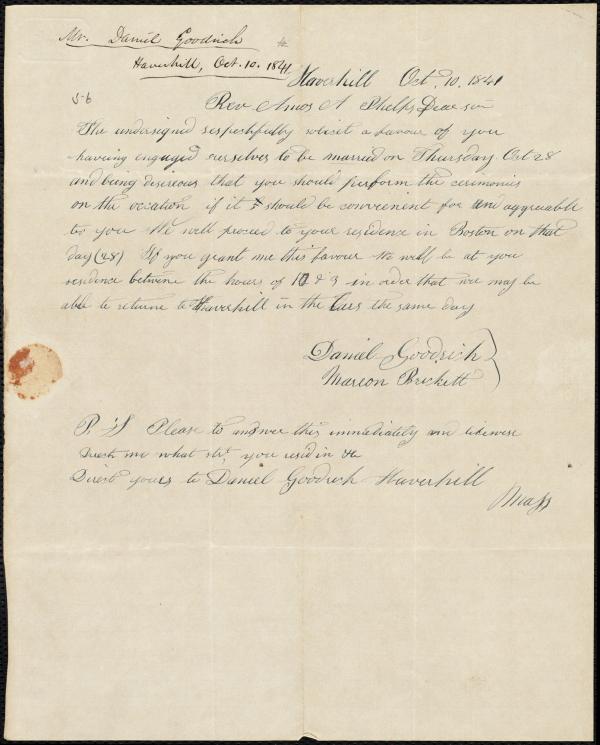 Mr. Daniel Goodrich
Haverhill, Oct. 10. 1841.
Haverhill Oct. 10. 1841
5-6
Rev Amos A Phelps, Dear sir
The undersigned respectfully solicit a favour of you
having engaged ourselves to be married on Thursday Oct 28
and being desireous that you should perform the cerimonies
on the occation if it should be convenient for and aggreable
to you We will proceed to your residence in Boston on that
day (28) If you grant me this favour We will be at you
residence betwine the hours of 10 & 3 in order that we may be
able to return to Haverhill in the Cars the same day
Daniel Goodrich
Marion Brickett
P. S Please to answer this immediately and likewise
me what str. you resid in &c
Direct yours to Daniel Goodrich Haverhill
Mass